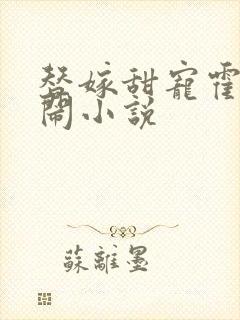 替嫁甜寵霍
閙小説
蘇離墨